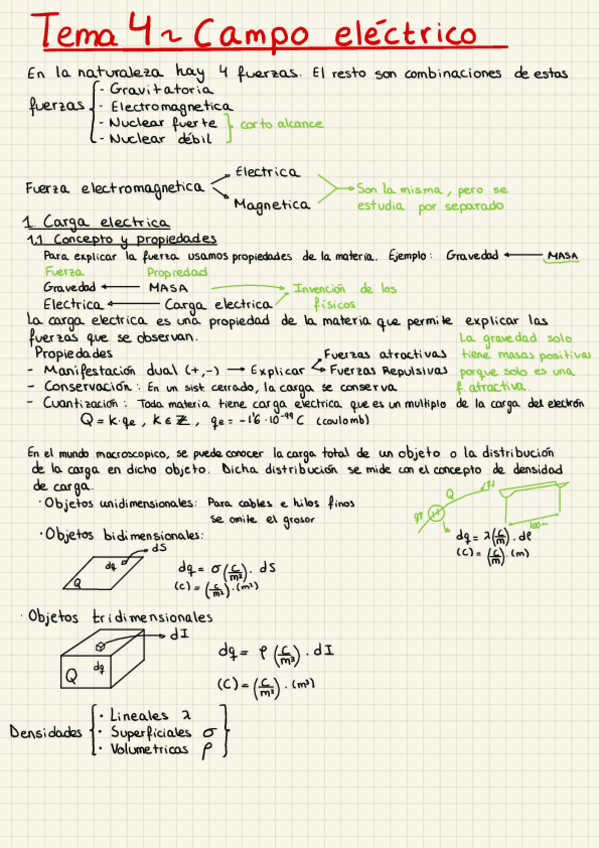 Tema 4 ~ Campo eléctrico
En la naturaleza hay 4 fuerzas. El resto son combinaciones de estas
fuerzas
- Gravitatoria
- Electromagnetica
- Nuclear fuerte
- Nuclear débil
corto alcance
Fuerza electromagnetica
Electrica
Magnetica
Son la misma, pero se
estudia por separado
1. Carga electrica
1.1 Concepto y propiedades
Para explicar la fuerza usamos propiedades de la materia. Ejemplo: Gravedad ← MASA
Fuerza Propiedad
Gravedad ← MASA
Electrica ← Carga electrica
Invención de los
físicos
La carga electrica es una propiedad de la materia que permite explicar las
fuerzas que se observan.
Propiedades
- Manifestación dual (+,-) → Explicar
Fuerzas atractivas
Fuerzas Repulsivas
La gravedad solo
tiene masas positivas
porque solo es una
f. atractiva.
- Conservación: En un sist. cerrado, la carga se conserva
- Cuantización: Toda materia tiene carga electrica que es un multiplo de la carga del electrón
Q = K·qe , K ∈ Z , qe = -1'6·10⁻¹⁹ C (coulomb)
En el mundo macroscopico, se puede conocer la carga total de un objeto o la distribución
de la carga en dicho objeto. Dicha distribución se mide con el concepto de densidad
de carga.
· Objetos unidimensionales: Para cables e hilos finos
se omite el grosor
Q
100m
dq = λ(C/m) · dl
(C) = (C/m) · (m)
· Objetos bidimensionales:
dS
dq
Q
dq = σ(C/m²) · dS
(C) = (C/m²) · (m²)
· Objetos tridimensionales
dI
Q
dq
dq = ρ(C/m³) · dI
(C) = (C/m³) · (m³)
Densidades
· Lineales λ
· Superficiales σ
· Volumetricas ρ